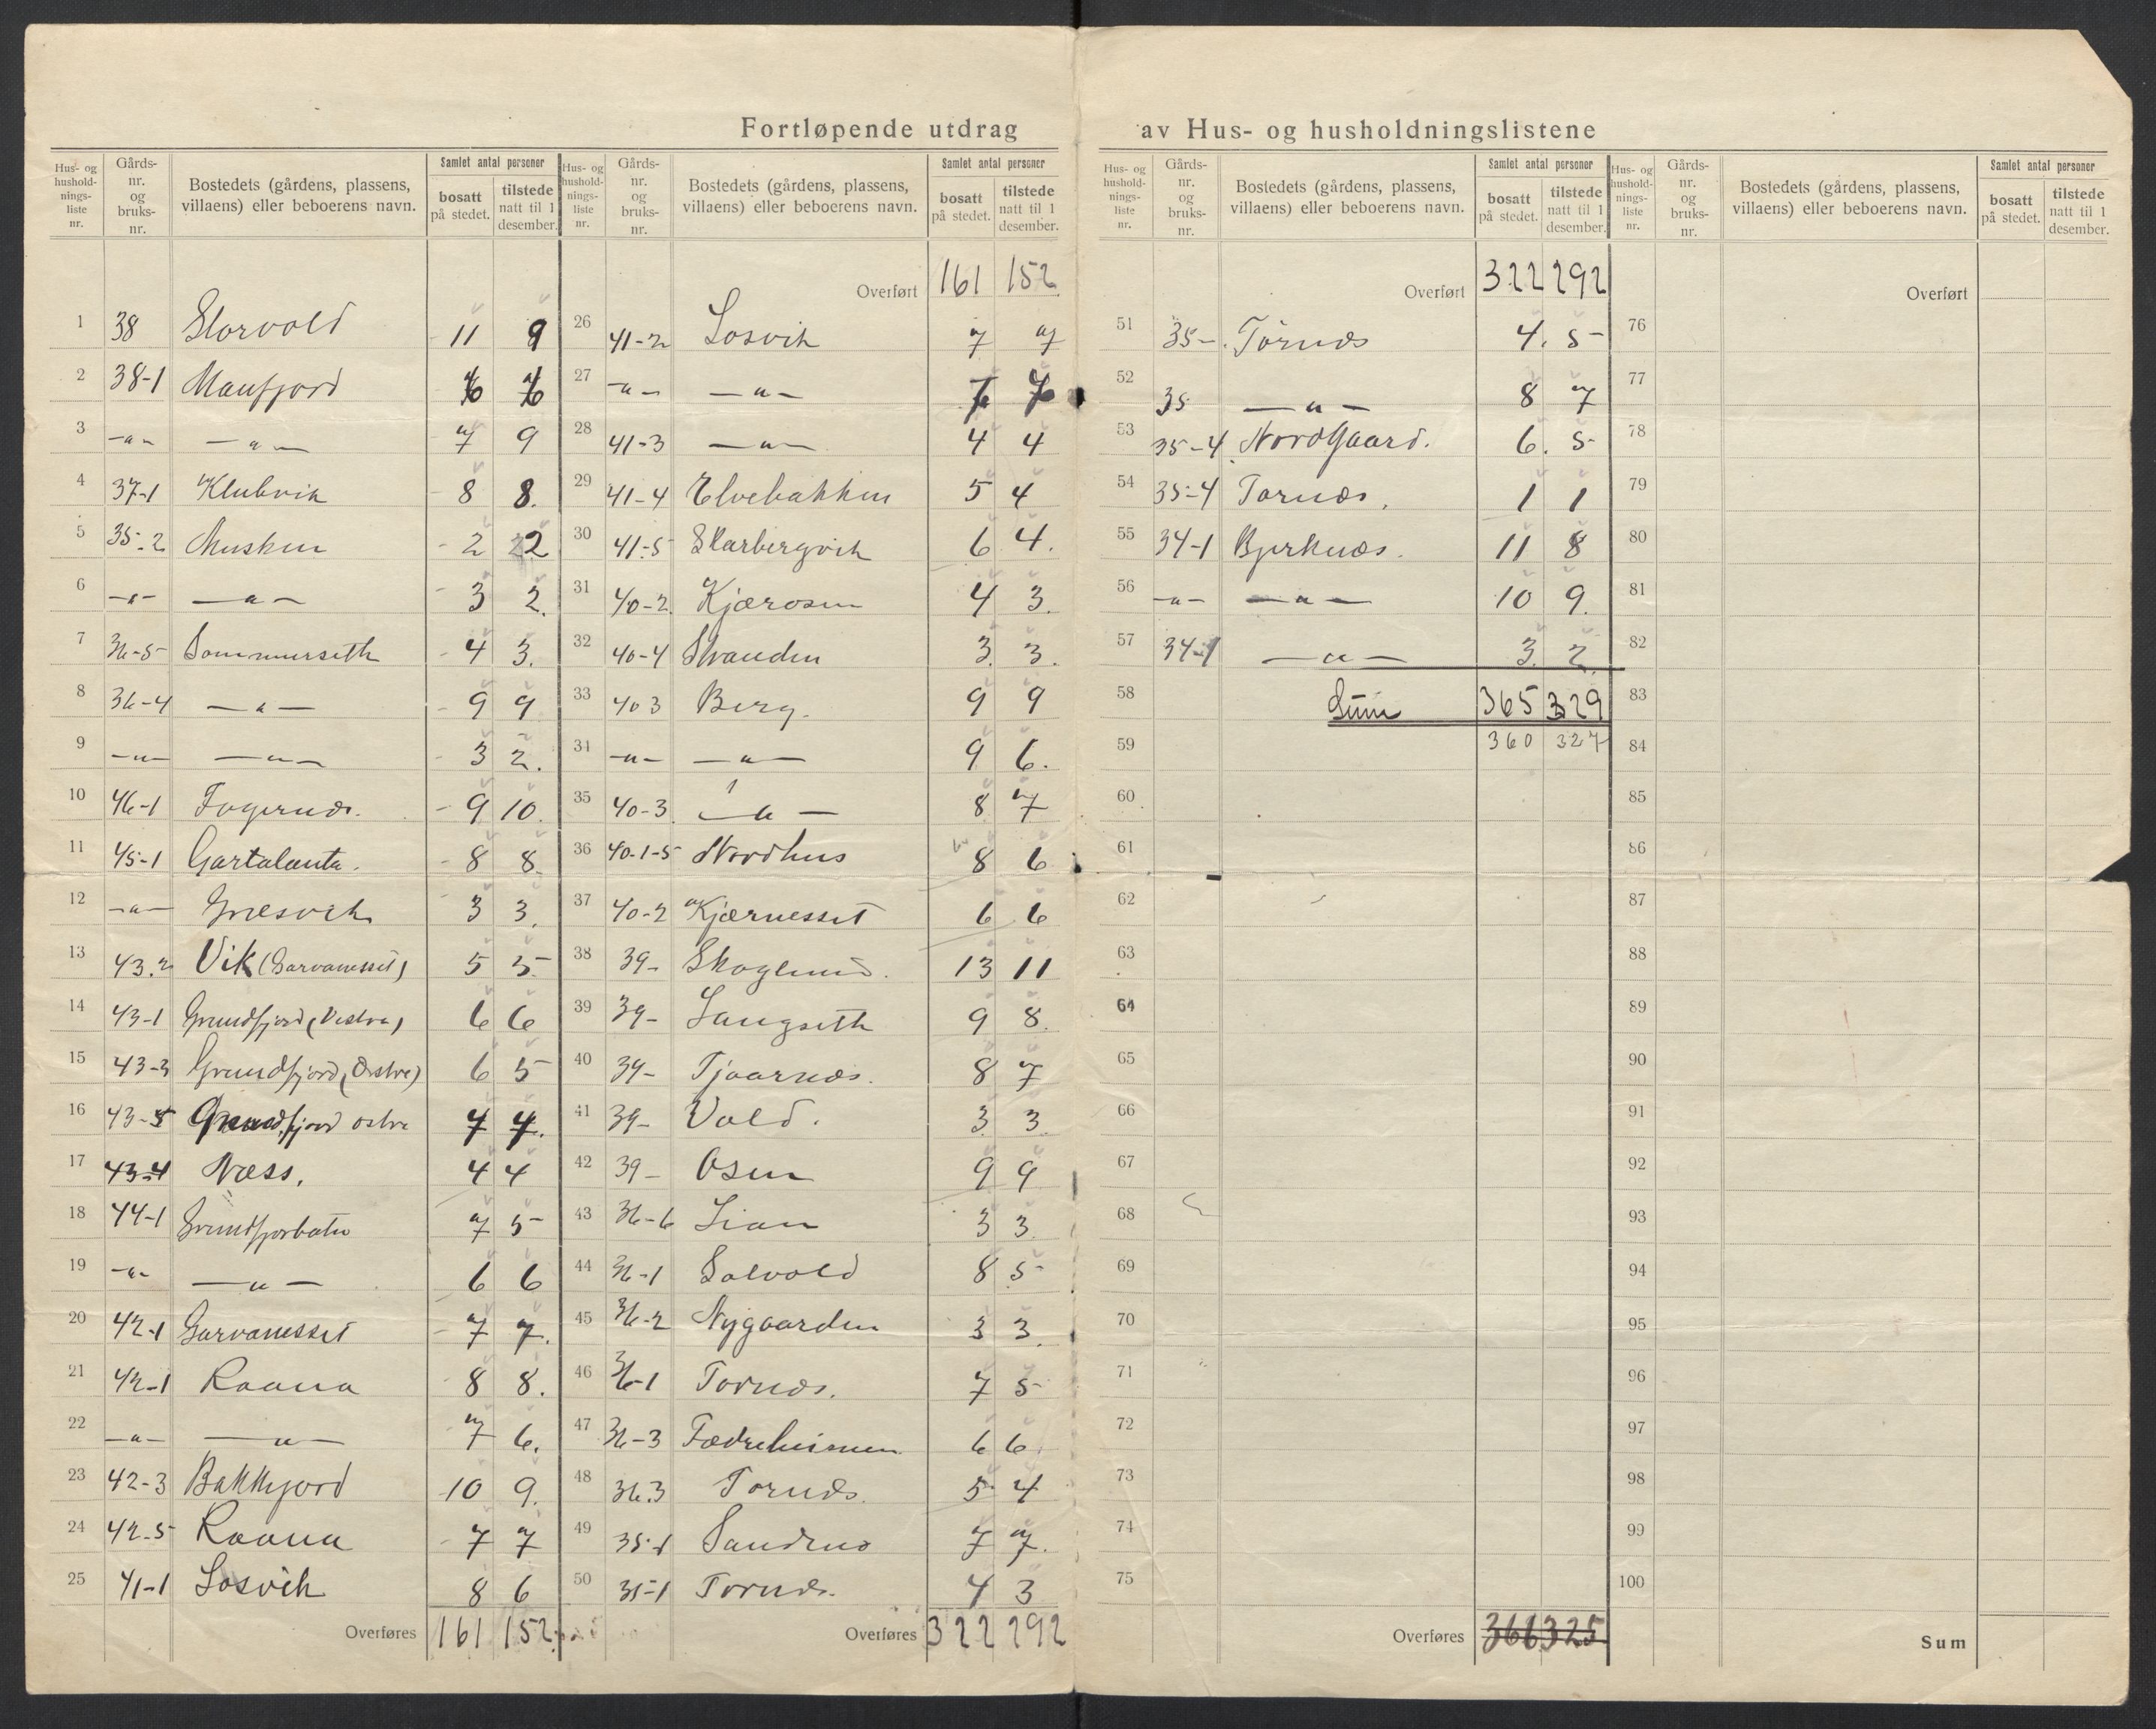 Fortløpende utdrag av Hus- og husholdningslistene
Hus- og hushold- nings- liste nr. Gårds- nr. og bruks- nr. Bostedets (gårdens, plassens, villaens) eller beboerens navn. Samlet antal personer bosatt på stedet. tilstede natt til 1 desember.
Hus- og hushold- nings- liste nr. Gårds- nr. og bruks- nr. Bostedets (gårdens, plassens, villaens) eller beboerens navn. Samlet antal personer bosatt på stedet. tilstede natt til 1 desember.
Hus- og hushold- nings- liste nr. Gårds- nr. og bruks- nr. Bostedets (gårdens, plassens, villaens) eller beboerens navn. Samlet antal personer bosatt på stedet. tilstede natt til 1 desember.
Hus- og hushold- nings- liste nr. Gårds- nr. og bruks- nr. Bostedets (gårdens, plassens, villaens) eller beboerens navn. Samlet antal personer bosatt på stedet. tilstede natt til 1 desember.
1 38 Storvold 11 9
2 38-1 Manfjord
3 -"- -"- 7 9
4 37-1 Klubvik 8 8.
5 35-2 Musken 2 2
6 -"- -"- 3 2.
7 36-5 Sommerseth 4 3.
8 36-4 -"- 9 9
9 -"- -"- 3 2.
10 46-1 Fagernæs. 9 10.
11 45-1 Gartalanta. 8 8
12 -"- Græsvik 3 3.
13 43.2 Vik (Garvanesset) 5 5
14 43-1 Grundfjord (Vestre) 6 6
15 43-3 Grundfjord (Østre) 6 5
16 43-5 Grundfjord østre 7 7.
17 43-4 Næss. 4 4
18 44-1 Grundfjorbotn 7 5
19 -"- -"- 6 6
20 42-1 Garvanesset 7 7.
21 42-1 Raana 8 8.
22 -"- -"- 7 6.
23 42-3 Bakkejord 10 9.
24 42-5 Raana 7 7
25 41-1 Losvik 8 6
Overføres 161 152
Overført 161 152
26 41-2 Losvik 7 7
27 -"- -"-
28 41-3 -"- 4 4
29 41-4 Elvebakken 5 4
30 41-5 Skarbergvik 6 4.
31 40-2 Kjærosen 4 3.
32 40-4 Stranden 3. 3.
33 40 3 Berg. 9 9
34 -"- -"- 9 6.
35 40-3 -"- 8 7
36 40-1-5 Nordhus 8 6
37 40-2 Kjærnesset 6 6
38 39- Skoglund. 13 11
39 39- Langseth 9 8.
40 39- Tjaarnæs. 8 7
41 39- Vold. 3 3
42 39- Osen 9 9
43 36-6 Lian 3 3.
44 36-1 Solvold 8 5
45 36-2 Nygaarden 3 3.
46 36-1 Tornæs. 7 5
47 36-3 Fædreheimen 6 6.
48 36.3 Tornæs. 5 4
49 35-1 Sandnes 7 7.
50 35-1 Tornæs. 4 3
Overføres 322 292
Overført 322 292
51 35- Tørnæs 4. 5
52 35 -"- 8 7
53 35-4 Nordgaard. 6. 5
54 35-4 Tornæs. 1 1
55 34-1 Bjerknæs. 11 8
56 -"- -"- 10 9.
57 34-1 -"- 3. 2.
58 Sum 365 329
59 360 327
60
61
62
63
64
65
66
67
68
69
70
71
72
73
74
75
Overføres 366 325
Overført
76
77
78
79
80
81
82
83
84
85
86
87
88
89
90
91
92
93
94
95
96
97
98
99
100
Sum